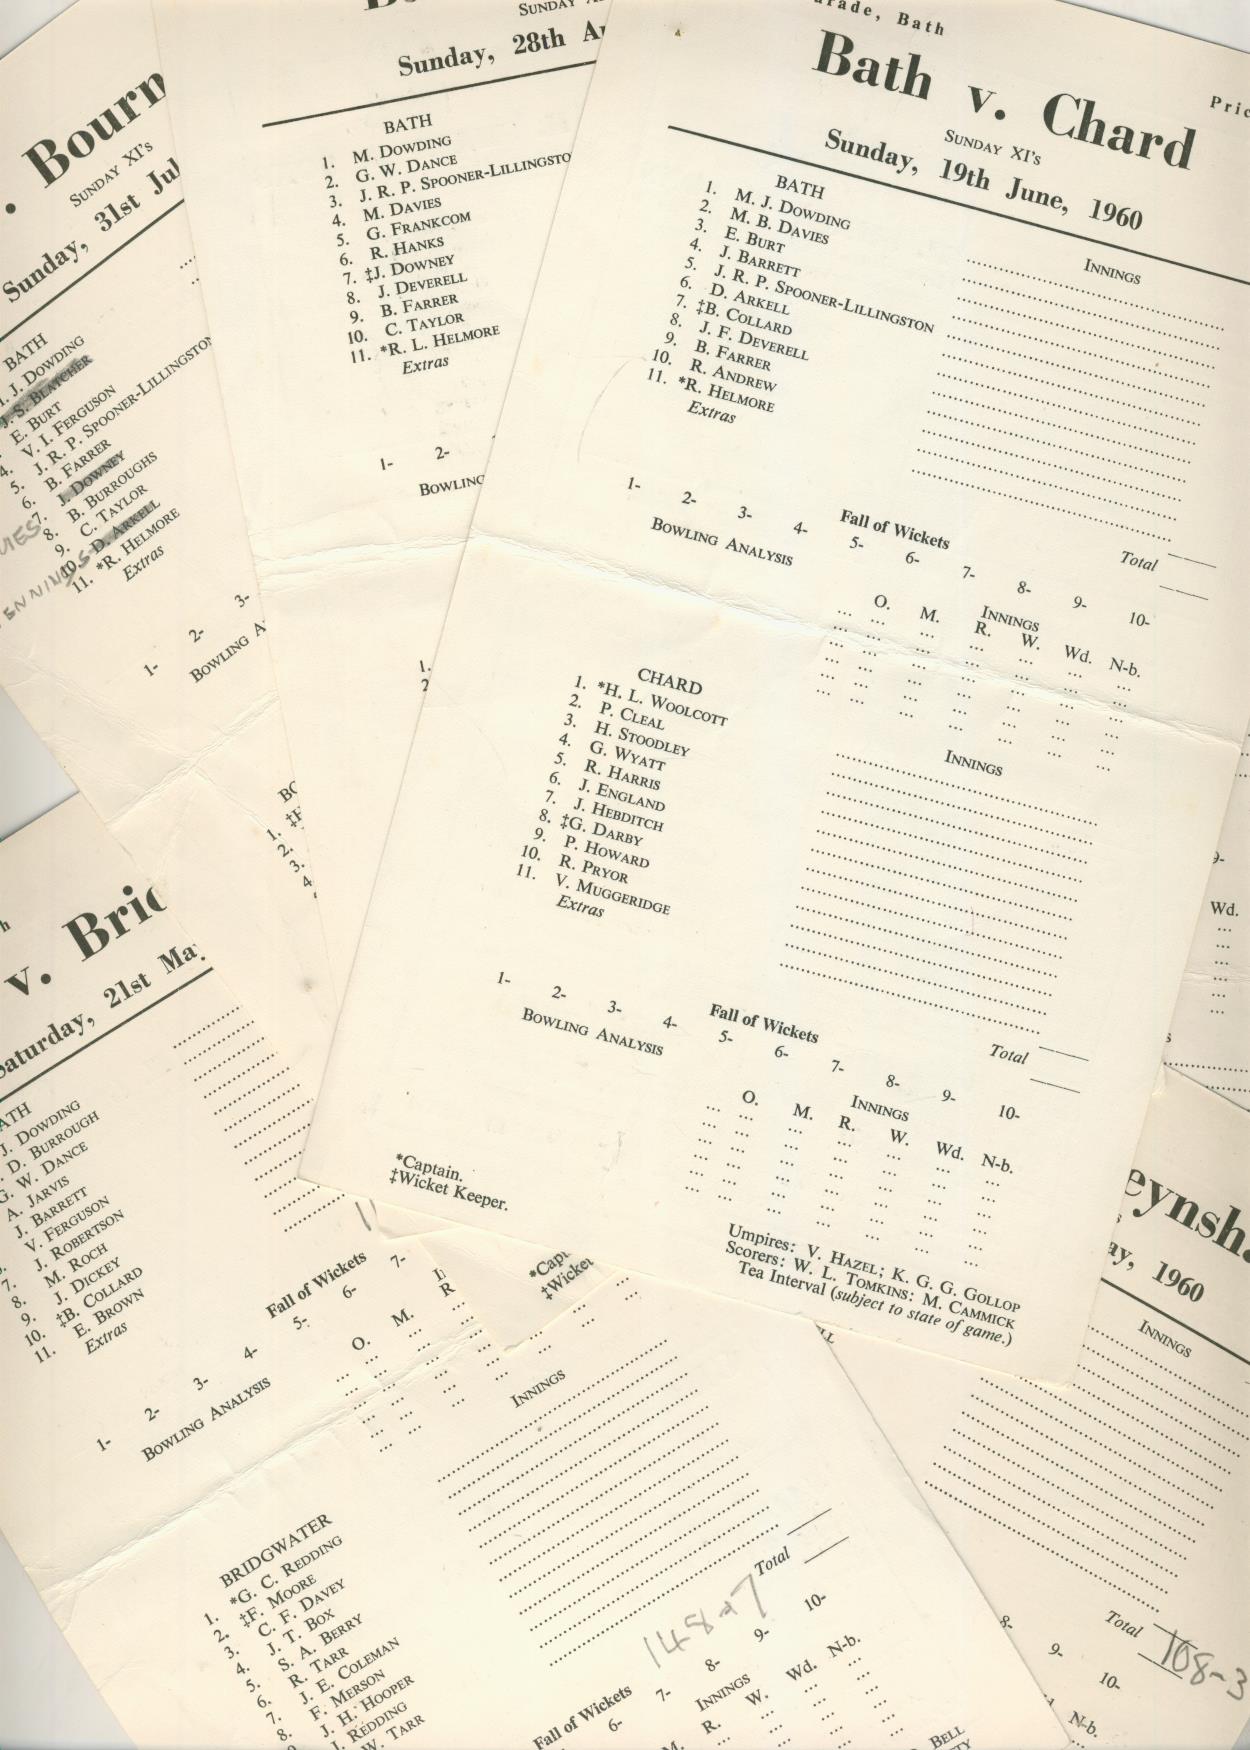 arade, Bath
Pric
Bath v. Chard
SUNDAY XI's
Sunday, 19th June, 1960
BATH
INNINGS
1. M. J. DOWDING
2. M. B. DAVIES
3. E. BURT
4. J. BARRETT
5. J. R. P. SPOONER-LILLINGSTON
6. D. ARKELL
7. ‡B. COLLARD
8. J. F. DEVERELL
9. B. FARRER
10. R. ANDREW
11. *R. HELMORE
Extras
Total
Fall of Wickets
1- 2- 3- 4- 5- 6- 7- 8- 9- 10-
BOWLING ANALYSIS
INNINGS
O. M. R. W. Wd. N-b.
CHARD
INNINGS
1. *H. L. WOOLCOTT
2. P. CLEAL
3. H. STOODLEY
4. G. WYATT
5. R. HARRIS
6. J. ENGLAND
7. J. HEBDITCH
8. ‡G. DARBY
9. P. HOWARD
10. R. PRYOR
11. V. MUGGERIDGE
Extras
Total
Fall of Wickets
1- 2- 3- 4- 5- 6- 7- 8- 9- 10-
BOWLING ANALYSIS
INNINGS
O. M. R. W. Wd. N-b.
*Captain.
‡Wicket Keeper.
Umpires: V. HAZEL; K. G. G. GOLLOP
Scorers: W. L. TOMKINS: M. CAMMICK
Tea Interval (subject to state of game.)
SUNDAY
Sunday, 28th A
BATH
1. M. DOWDING
2. G. W. DANCE
3. J. R. P. SPOONER-LILLINGSTO
4. M. DAVIES
5. G. FRANKCOM
6. R. HANKS
7. ‡J. DOWNEY
8. J. DEVERELL
9. B. FARRER
10. C. TAYLOR
11. *R. L. HELMORE
Extras
1- 2-
BOWLING
1.
2
. Bourn
SUNDAY XI's
Sunday, 31st Jul
BATH
. J. DOWDING
J. S. BLATCHER
E. BURT
4. V. I. FERGUSON
5. J. R. P. SPOONER-LILLINGSTON
6. B. FARRER
7. J. DOWNEY
8. B. BURROUGHS
9. C. TAYLOR
10. D. ARKELL
11. *R. HELMORE
Extras
1- 2- 3-
BOWLING A
BO
1. ‡F
2.
3.
4
v. Brid
Saturday, 21st May
ATH
J. DOWDING
D. BURROUGH
G. W. DANCE
A. JARVIS
J. BARRETT
V. FERGUSON
7. J. ROBERTSON
8. M. ROCH
9. J. DICKEY
10. ‡B. COLLARD
11. E. BROWN
Extras
Fall of Wickets
1- 2- 3- 4- 5- 6- 7-
BOWLING ANALYSIS
O. M. R
*Capt
‡Wicket
BRIDGWATER
INNINGS
1. *G. C. REDDING
2. ‡F. MOORE
3. C. F. DAVEY
4. J. T. BOX
5. S. A. BERRY
6. R. TARR
7. J. E. COLEMAN
8. F. MERSON
9 J. H. HOOPER
J. REDDING
W. TARR
Total
148-7
Fall of Wickets
6- 7- 8- 9- 10-
INNINGS
M. R. W. Wd. N-b.
BELL
eynsha
ay, 1960
INNINGS
Total
108-3
8- 9- 10-
N-b.
9-
Wd.